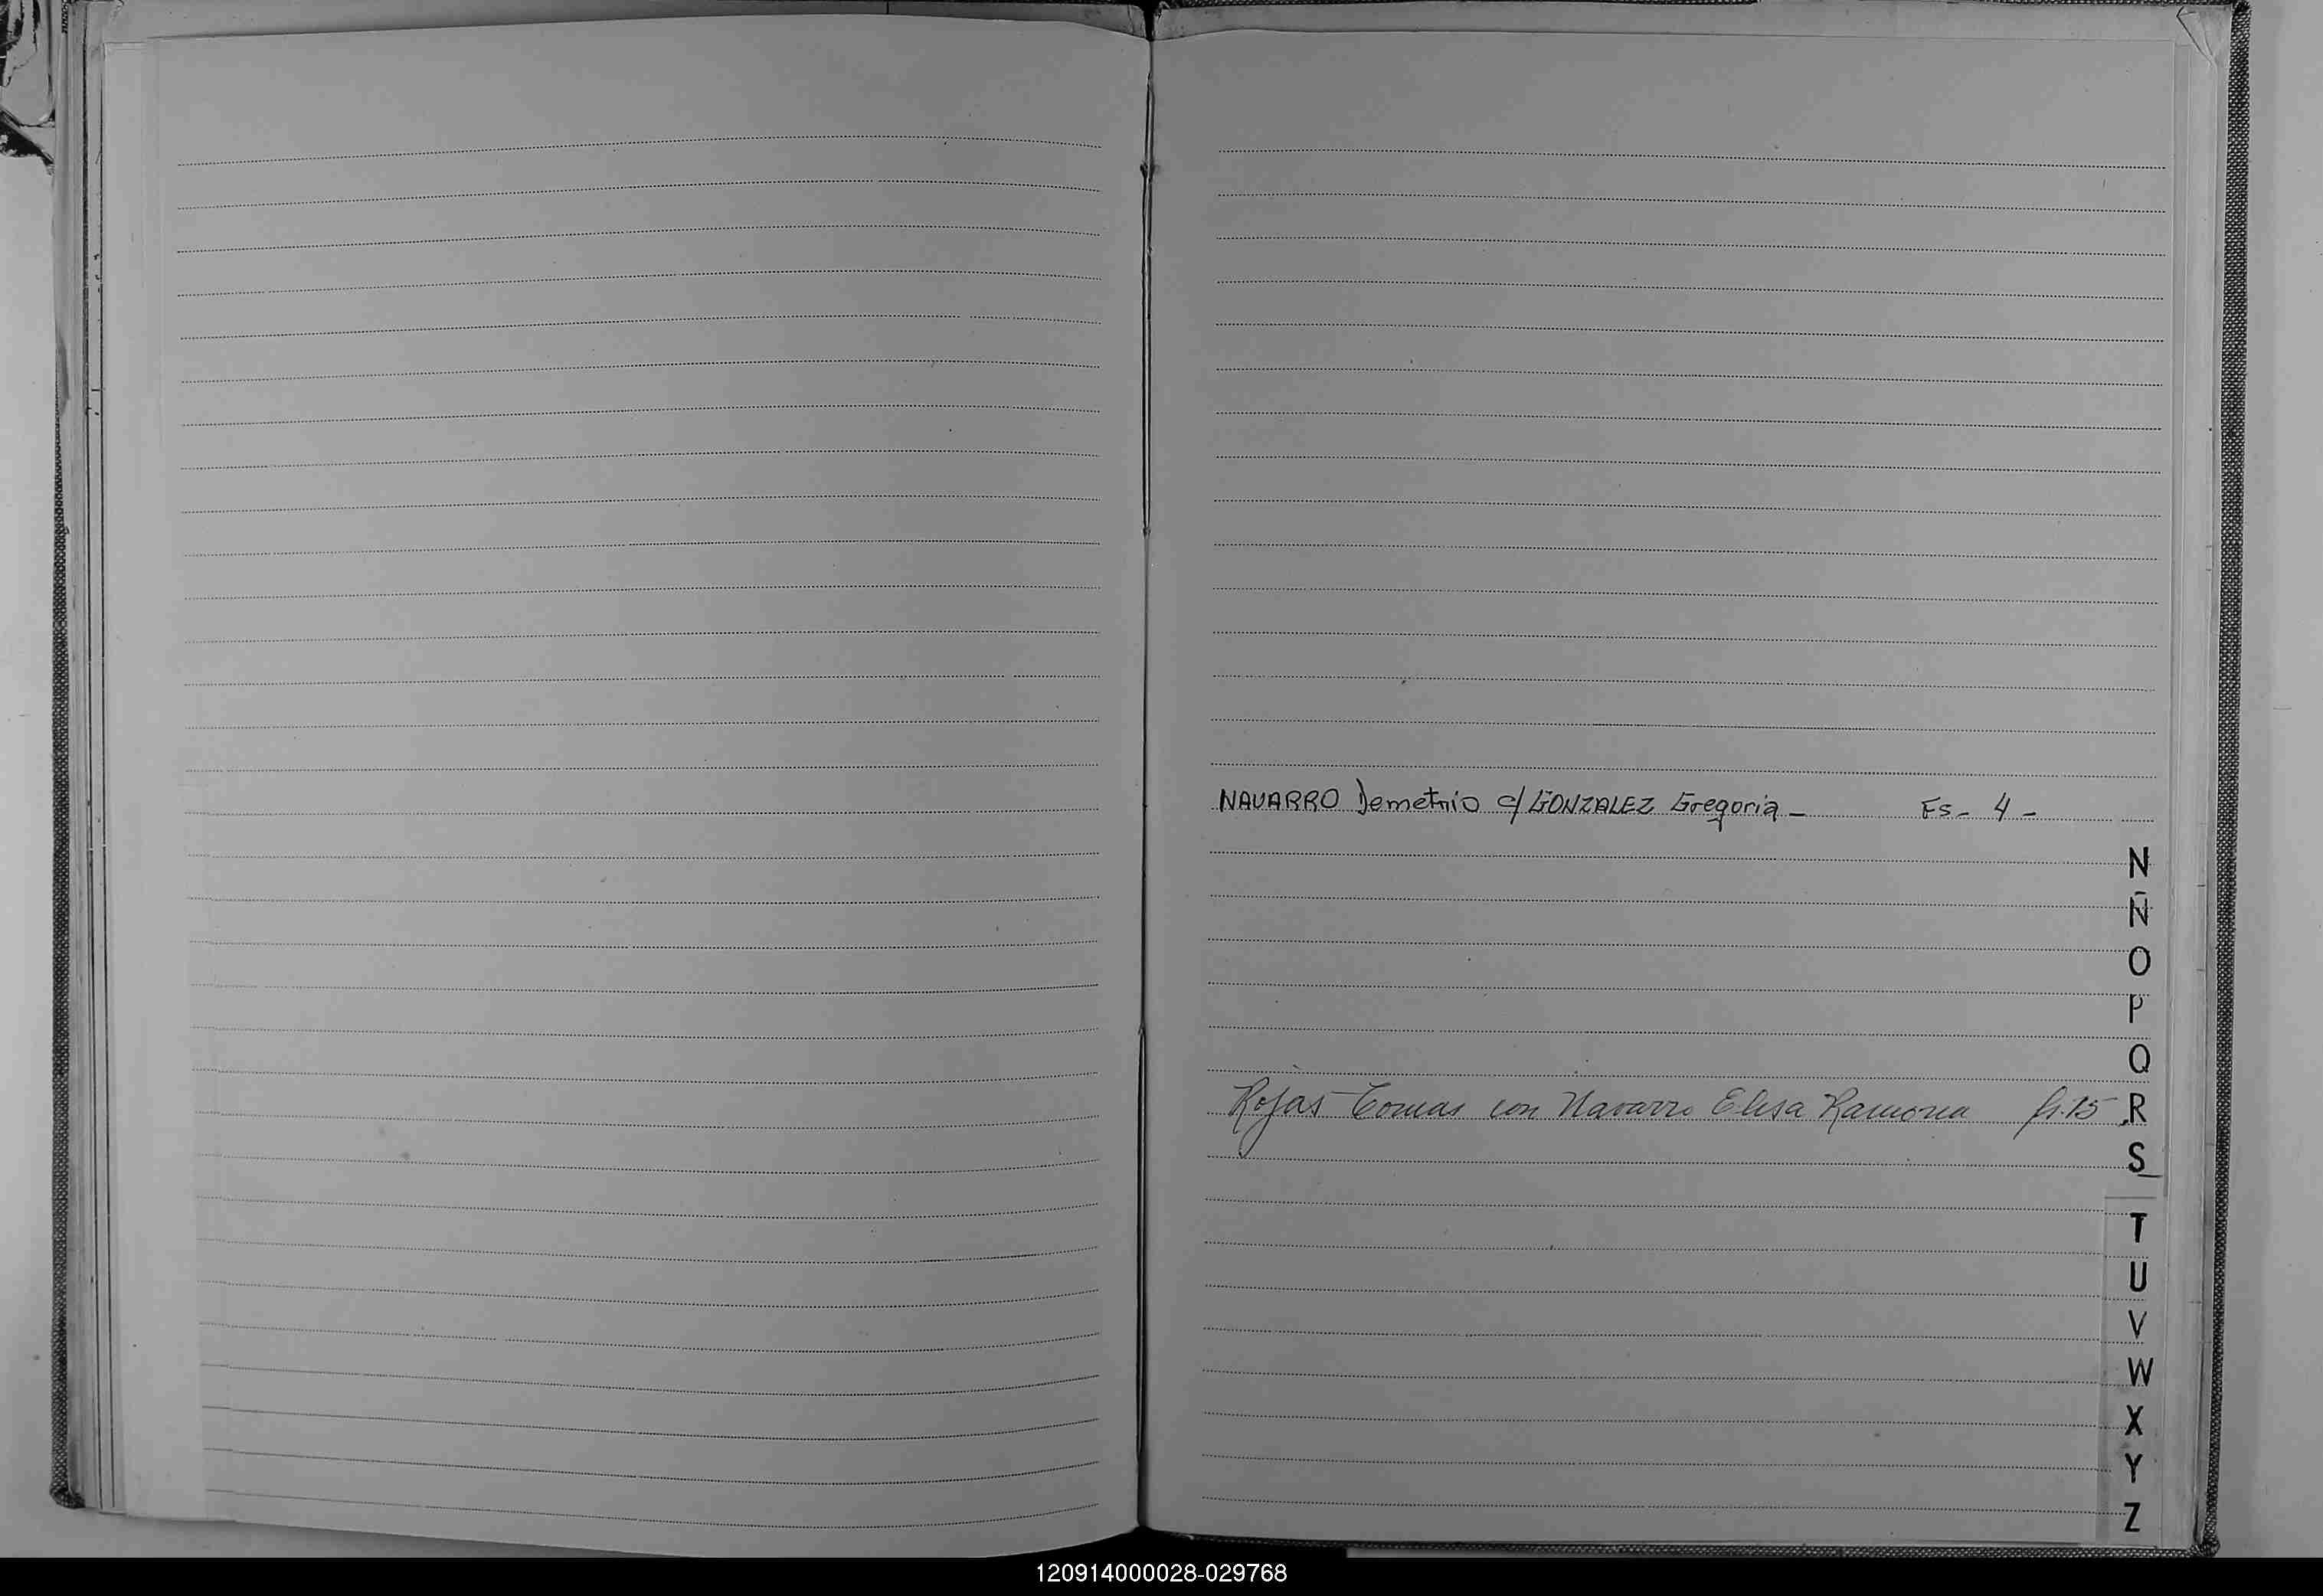 NAVARRO Demetrio c/ GONZALEZ Gregoria - Fs- 4 -
N
Ñ
O
P
Q
Rojas Tomas con Navarro Elisa Ramona fs. 15
R
S
T
U
V
W
X
Y
Z
120914000028-029768